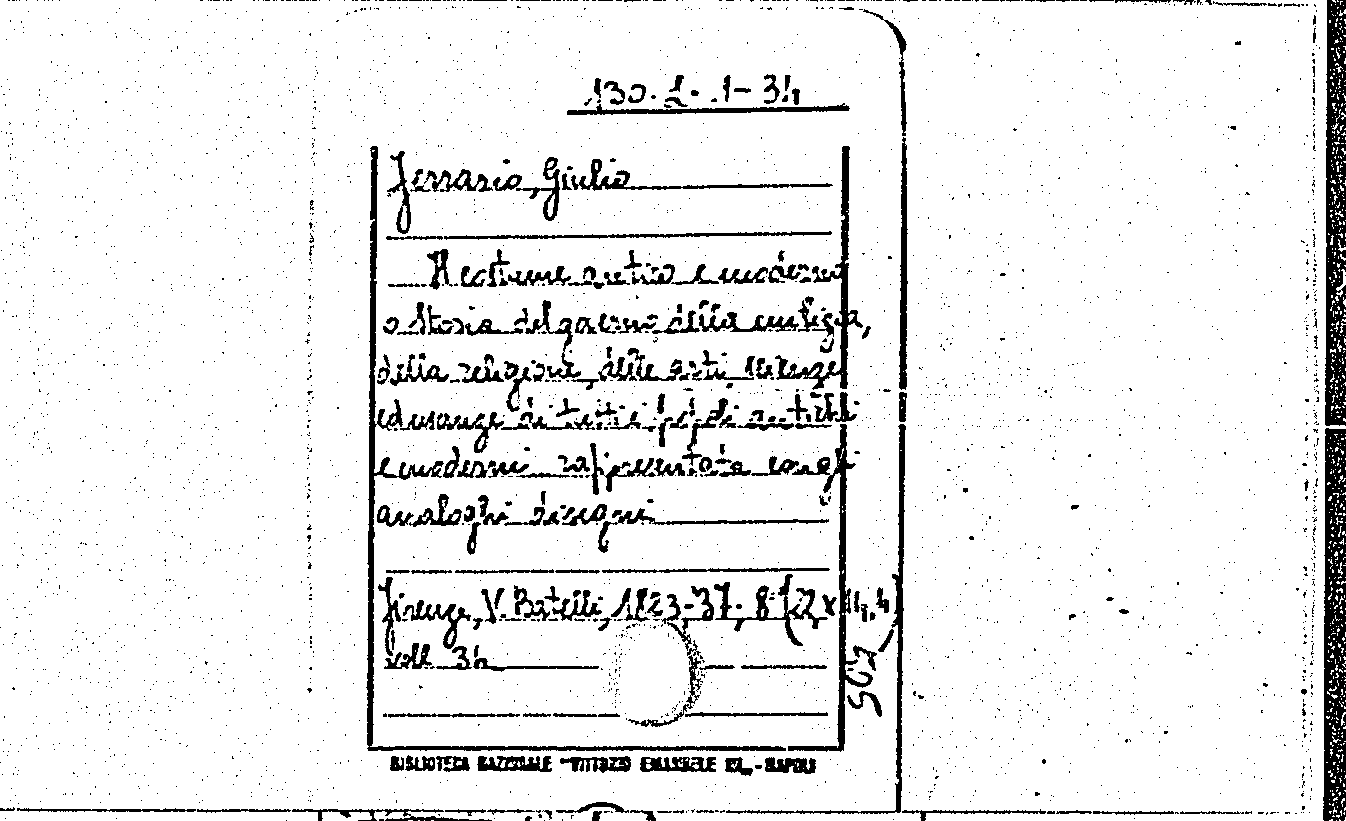 130. 2. 1-34
Ferrario, Giulio
Il costume antico e moderno
o storia del governo, della milizia,
della religione, delle arti, scienze
ed usanze di tutti i popoli antichi
e moderni rappresentata con gli
analoghi disegni
Firenze, V. Batelli, 1823-37, 8°
voll. 34
BIBLIOTECA NAZIONALE "VITTORIO EMANUELE III" - NAPOLI